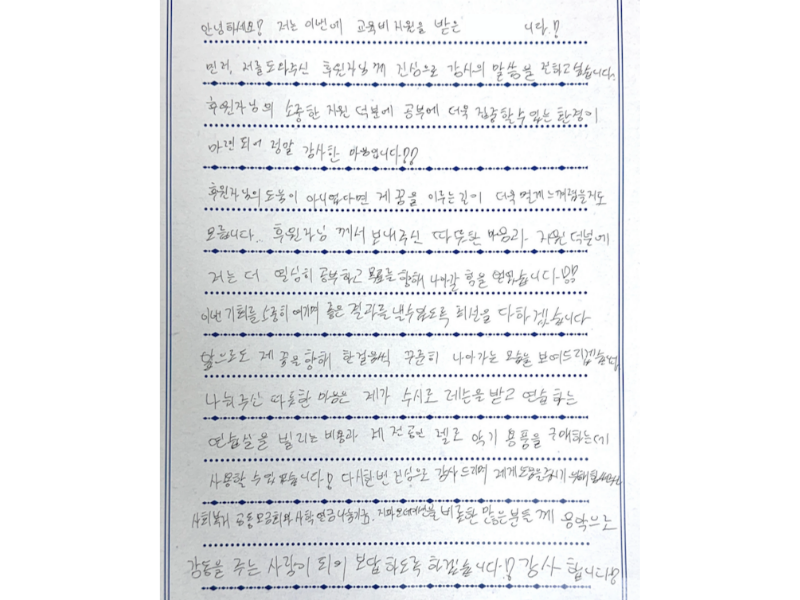 안녕하세요! 저는 이번에 교육비 지원을 받은 니다.!
먼저, 저를 도와주신 후원자님께 진심으로 감사의 말씀을 전하고 싶습니다.
후원자님의 소중한 지원 덕분에 공부에 더욱 집중할 수 있는 환경이
마련되어 정말 감사한 마음입니다!!
후원자님의 도움이 아니였다면 제 꿈을 이루는 길이 더욱 멀게 느껴졌을지도
모릅니다. 후원자님께서 보내주신 따뜻한 마음과 지원 덕분에
저는 더 열심히 공부하고 목표를 향해 나아갈 힘을 얻었습니다!!
이번 기회를 소중히 여기며 좋은 결과를 낼 수 있도록 최선을 다하겠습니다
앞으로도 제 꿈을 향해 한걸음씩 꾸준히 나아가는 모습을 보여드리겠습니다
나눠주신 따뜻한 마음은 제가 수시로 레슨을 받고 연습하는
연습실을 빌리는 비용과 제 전공인 첼로 악기 용품을 구매하는데
사용할 수 있었습니다! 다시한번 진심으로 감사드리며 제게 도움을 주시기 위해 힘써주신
사회복지 공동모금회와 사학연금나눔기금, 비롯한 많은분들께 음악으로
감동을 주는 사람이 되어 보답하도록 하겠습니다!! 감사합니다!